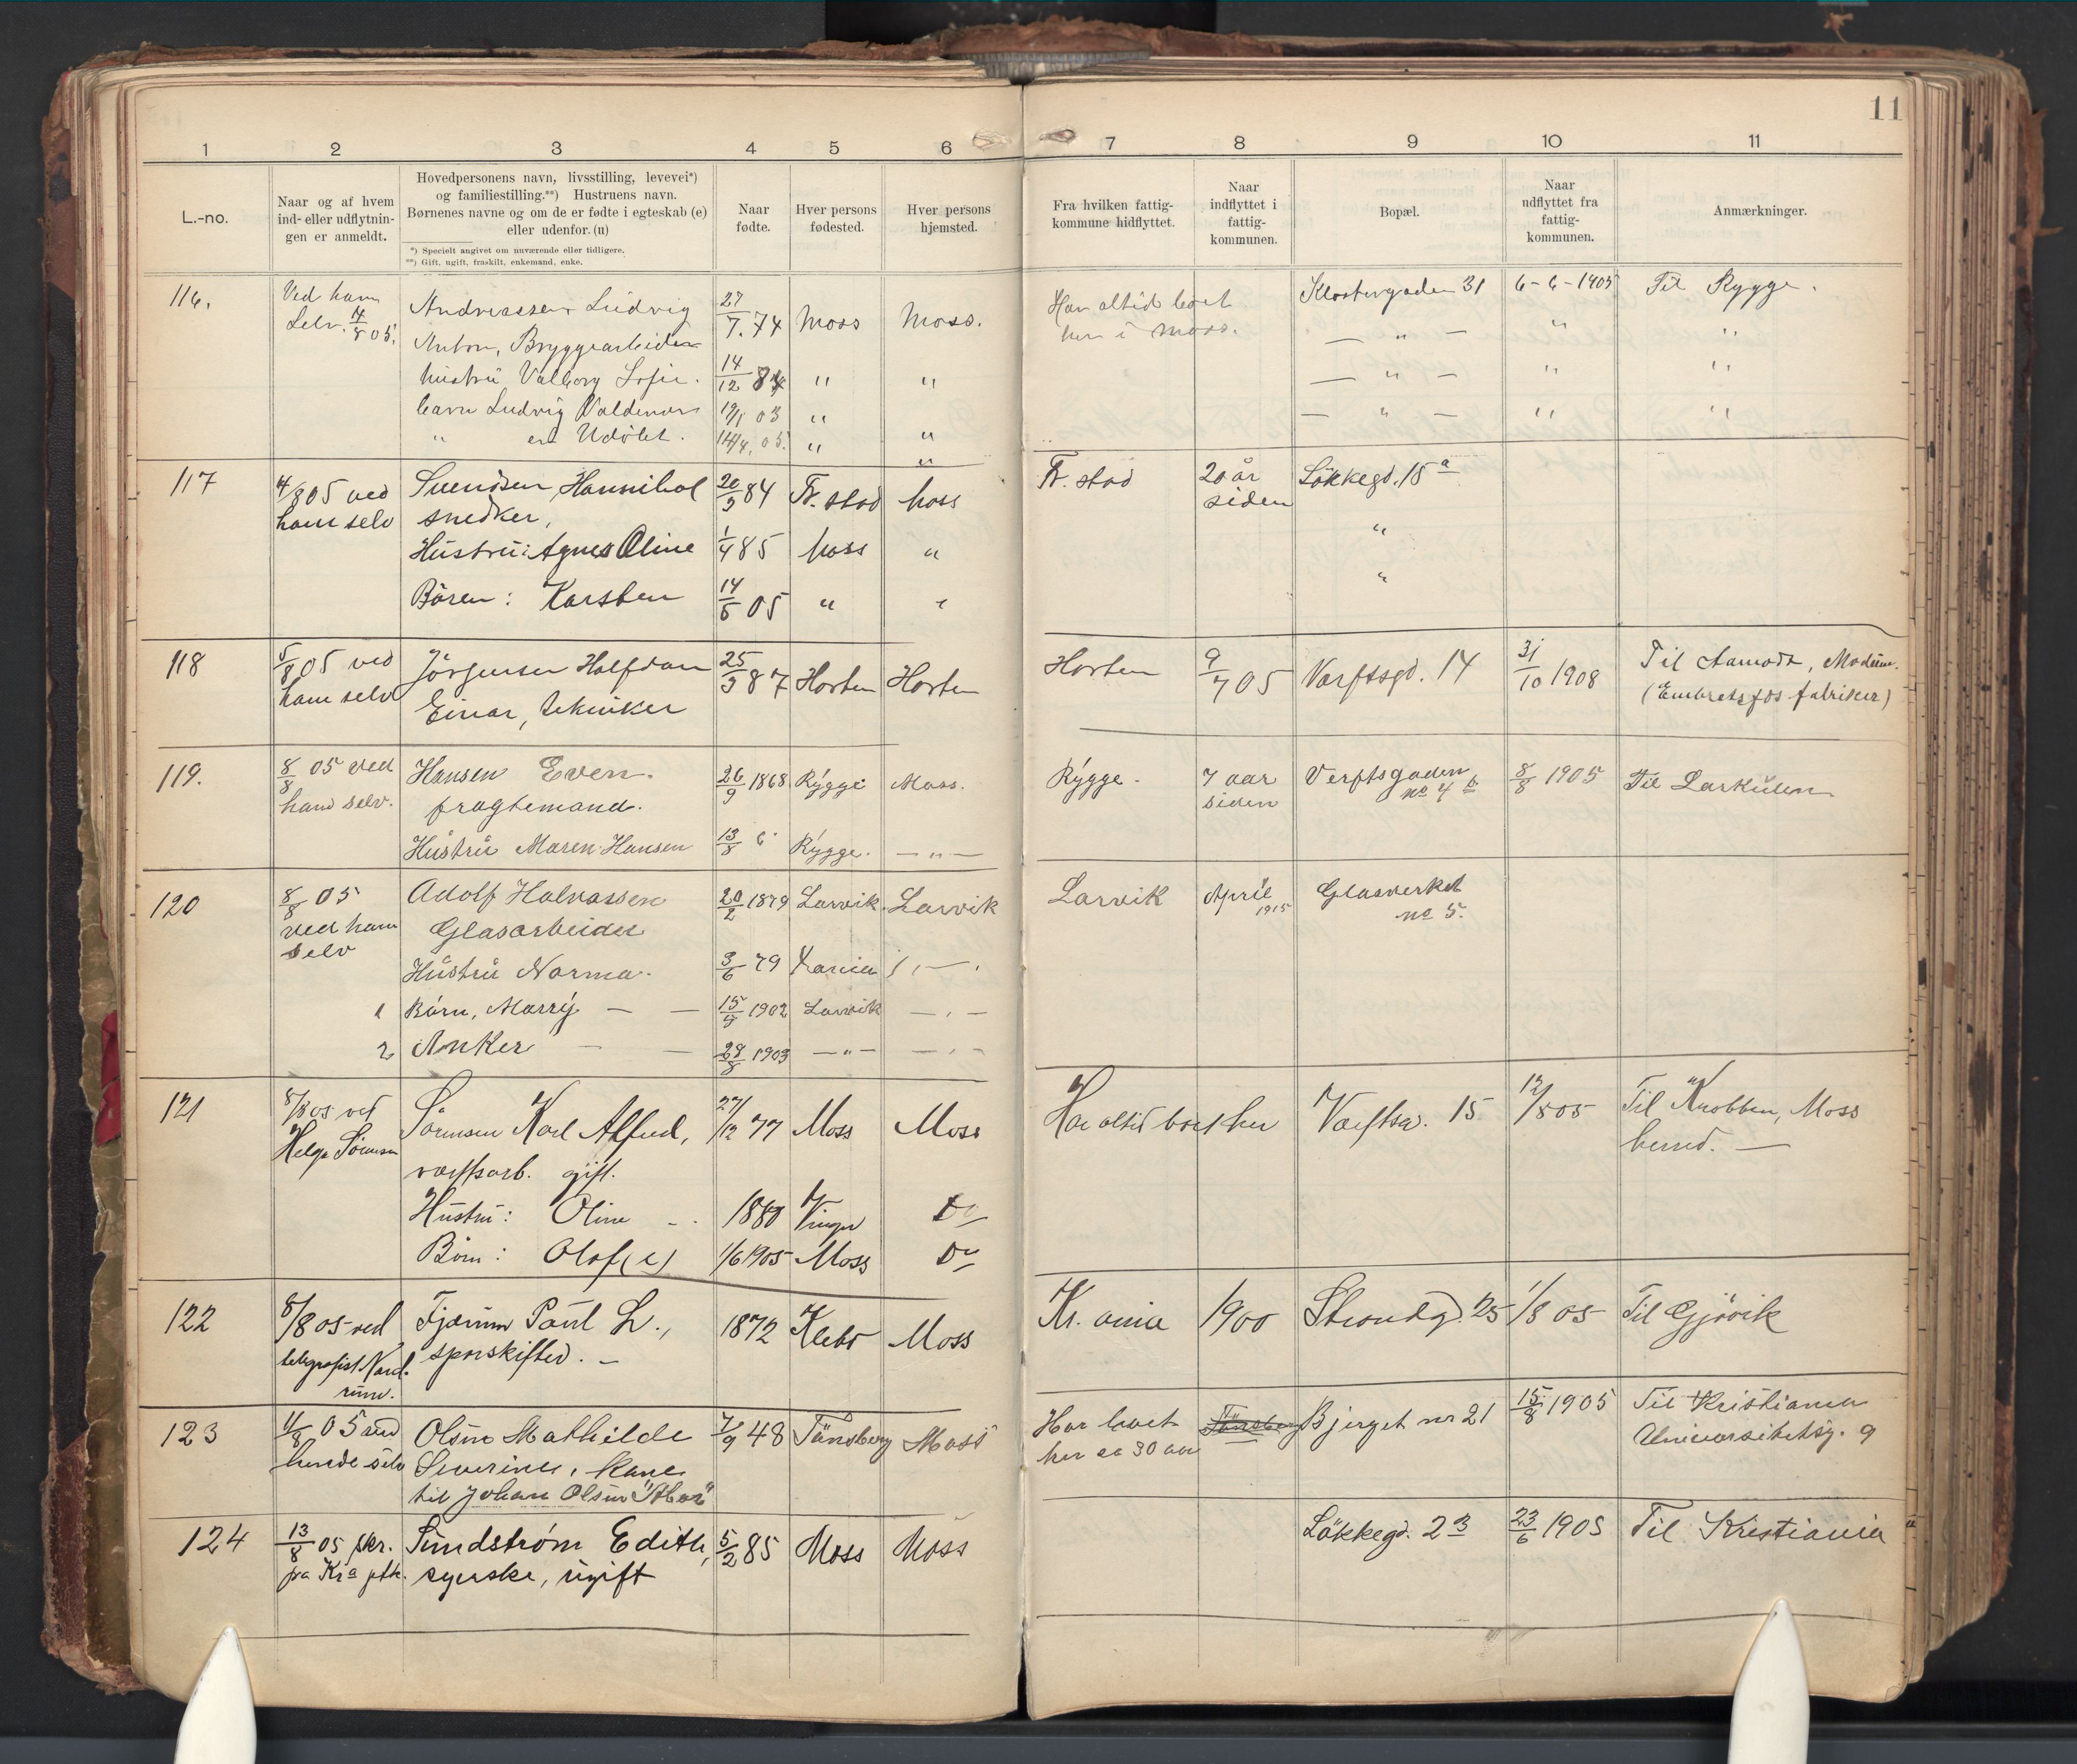 11
1 2 3 4 5 6 7 8 9 10 11
L.-no.
Naar og af hvem
ind- eller udflytnin-
gen er anmeldt.
Hovedpersonens navn, livsstilling, levevei*)
og familiestilling.**) Hustruens navn.
Børnenes navne og om de er fødte i egteskab (e)
eller udenfor. (u)
*) Specielt angivet om nuværende eller tidligere.
**) Gift, ugift, fraskilt, enkemand, enke.
Naar
fødte.
Hver persons
fødested.
Hver persons
hjemsted.
Fra hvilken fattig-
kommune hidflyttet.
Naar
indflyttet i
fattig-
kommunen.
Bopæl.
Naar
udflyttet fra
fattig-
kommunen.
Anmærkninger.
116. Ved ham Andreassen Ludvig 27/7. 74 Moss Moss. Har altid boet Klostergaden 31 6-6-1905 Til Rygge.
Selv. 4/8 05. Anton, Bryggearbeider her i Moss. — " — " "
hustru Valborg Sofie. 14/12 84 " " — " — " "
barn Ludvig Valdemar 19/1 03 " — " — " "
" en Udøbt. 14/4. 05. " "
"
117 4/8 05 ved Svendsen, Hannibal 20/3 84 Fr. stad Moss Fr. stad 20 år Løkkegd. 15 a
ham selv snedker, siden "
Hustru: Agnes Oline 1/4 85 Moss " "
Bören: Karsten 14/5 05 " "
118 5/8 05 ved Jörgensen Halfdan 25/3 87 Horten Horten Horten 9/7 05 Varftsgd. 14 31/10 1908 Til Aamodt, Modum.
ham selv Einar, tekniker (Embretsfos fabriker)
119. 8/8 05 ved Hansen Even. 26/9 1868 Rygge Moss. Rygge. 7 aar Verftsgaden 8/8 1905 Til Larkullen
ham selv. fragtemand. siden no 4 b
Hustru Maren Hansen 13/8 Rygge. — " —
120 8/8 05 Adolf Halvassen 20/2 1879 Larvik. Larvik Larvik April Glasverket
ved ham Glasarbeider 1915 no 5.
selv Hustru Norma. 3/6 79 Kania
1 Børn, Marry — — 15/9 1902 Larvik — " —
2 Anker — — 28/8 1903 — " — — " —
121 8/8 05 ved Sörensen Karl Alfred, 27/12 77 Moss Moss Har altid boet her Varftsg. 15 12/8 05 Til Knobben, Moss
Helga Sörensen varftsarb. gift. herred. —
Hustru: Oline — 1880 Vinger Do
Børn: Olaf (e) 1/6 1905 Moss Do
122 8/8 05 ved Fjærum Paul L., 1872 Klebo Moss Kr. ania 1900 Strandg. 25 1/8 05 Til Gjövik
telegrafist Nord- sporskifter. —
rum.
123 11/8 05 ved Olsen Mathilde 7/9 48 Tönsberg Moss Har boet Tönsberg Bjerget nr 21 15/8 1905 Til Kristiania
hende selv Severine, kone her ca 30 aar Universitetsg. 9
til Johan Olsen
124 13/8 05 skr. Sundstrøm Edith, 5/2 85 Moss Moss Løkkegd. 23 23/6 1905 Til Kristiania
fra Kra ptk. syerske, ugift